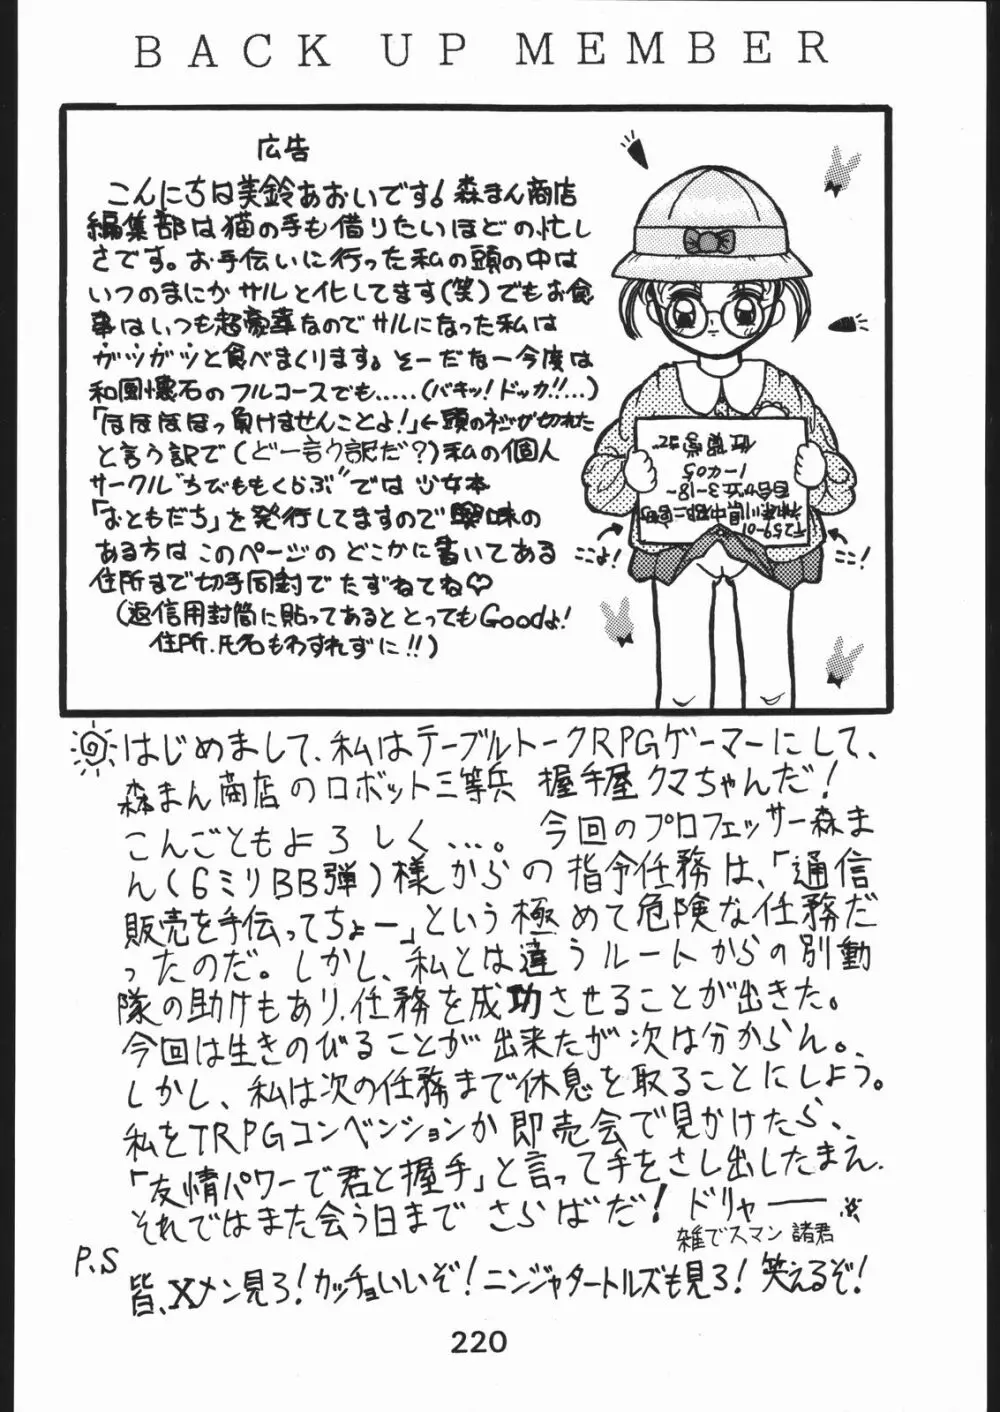 BACK UP MEMBER
広告
こんにちは美鈴あおいです！森まん商店
編集部は猫の手も借りたいほどの忙し
さです。お手伝いに行った私の頭の中は
いつのまにかサルと化してます(笑)でもお食
事はいつも超豪華なのでサルになった私は
ガツガツと食べまくります。そーだなー今度は
和風懐石のフルコースでも.....(バキッ！ドッカ!!...)
「ほほほほっ負けませんことよ！」←頭のネジが切れた
と言う訳で(どー言う訳だ？)私の個人
サークル"ちびももくらぶ"では少女本
「おともだち」を発行してますので興味の
ある方はこのページのどこかに書いてある
住所まで切手同封でたずねてね♡
(返信用封筒に貼ってあるととってもGoodよ！
住所.氏名もわすれずに!!)
ここよ！
ここ！
はじめまして、私はテーブルトークRPGゲーマーにして、
森まん商店のロボット三等兵 握手屋クマちゃんだ！
こんごともよろしく...。 今回のプロフェッサー森ま
ん(6ミリBB弾)様からの指令任務は、「通信
販売を手伝ってちょー」という極めて危険な任務だ
ったのだ。しかし、私とは違うルートからの別動
隊の助けもあり、任務を成功させることが出きた。
今回は生きのびることが出来たが次は分からん。
しかし、私は次の任務まで休息を取ることにしよう。
私をTRPGコンベンションか即売会で見かけたら、
「友情パワーで君と握手」と言って手をさし出したまえ.
それではまた会う日まで さらばだ！ ドリャ――
雑でスマン 諸君
P.S
皆、Xメン見ろ！カッチョいいぞ！ニンジャタートルズも見ろ！笑えるぞ！
220